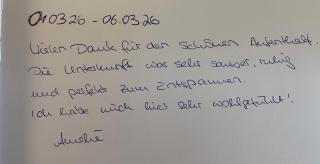 01.03.26 - 06.03.26
Vielen Dank für den schönen Aufenthalt.
Die Unterkunft war sehr sauber, ruhig
und perfekt zum Entspannen.
Ich habe mich hier sehr wohlgefühlt!